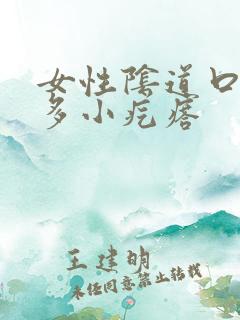 女性陰道口
多小疙瘩
王建明
未经同意禁止转载